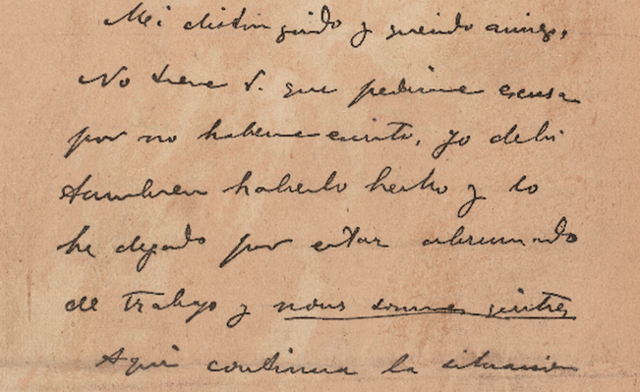 Mi distinguido y querido amigo,
No tiene V. que pedirme escusa
por no haberme escrito, yo debi
tambien haberlo hecho y lo
he dejado por estar abrumado
de trabajo y nous sommes quittes
Aqui continua la situacion